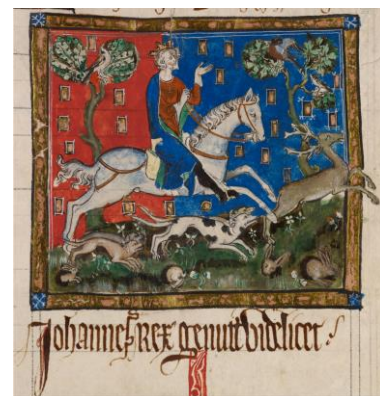 Johannes Rex genuit videlicet :